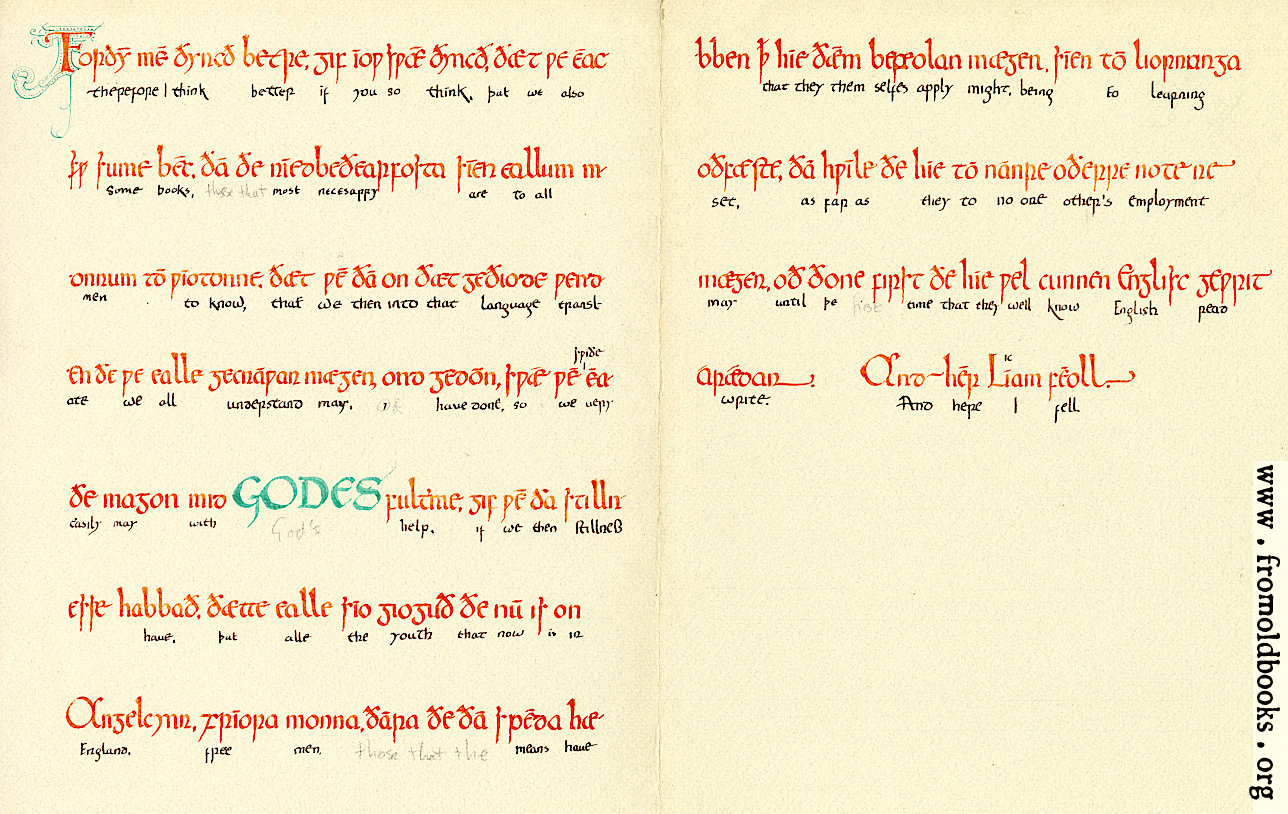 Forðȳ mē ðyncð betre, gif īow swǣ ðyncð, ðæt ƿe ēac
therefore I think better if you so think, þat we also
sƿ sume bēc, ðā ðe nīedbeðearfosta sīen eallum m
some books, those that most necesarry are to all
onnum tō ƿiotonne, ðæt ƿē ðā on ðæt geðiode ƿend
men to know, that we then into that language transl
en ðe ƿe ealle gecnāƿan mægen, ond gedōn, sƿǣ ƿē sƿiðe ēa
ate we all understand may, have done, so we very
ðe magon mid GODES fultme, gif ƿē ðā stilln
easily may with God's help, if we then stillneß
esse habbað, ðætte ealle sīo gioguð ðe nū is on
have, þat alle the youth that now is in
Angelcynn, frīora monna, ðāra ðe ðā spēda hæ
England, free men, those that the means have
bben þ hie ðǣm befeolan mægen, sīen tō liornunga
that they them selfes apply might, being to learning
oðfæste, ðā hƿīle ðe hie tō nānre oðerre note ne
set, as far as they to no one other's employment
mægen, oð ðone first ðe hie ƿel cunnen Englisc geƿrit
may until þe first time that they well know English read
arǣdan. And hēr Līam fēoll.
write. And here I fell
www.fromoldbooks.org